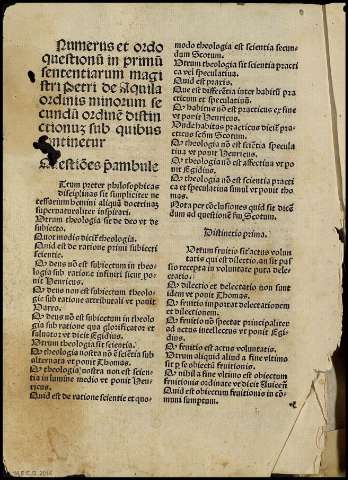 Numerus et ordo
questionū in primū
sententiarum magi
stri Petri de Aquila
ordinis minorum se
cundū ordinē distin
ctionuȝ sub quibus
continetur
Questiōes ꝑambule
Utrum preter philosophicas
disciplinas sit simpliciter ne
cessarium homini aliquā doctrinaȝ
supernaturaliter inspirari.
Utrum theologia sit de deo vt de
subiecto.
Quot modis dicit̄ theologia.
Quid est de ratione primi subiecti
scientie.
Qȝ deus nō est subiectum in theo
logia sub ratione infiniti sicut po
nit Henricus.
Qȝ deus non est subiectum theolo
gie sub ratione attributali vt ponit
Varro.
Qȝ deus nō est subiectum in theolo
gia sub ratione qua glorificator et
saluator vt dicit Egidius.
Utrum theologia sit scientia.
Qȝ theologia nostra nō ē scētia sub
alternata vt ponit Thomas.
Qȝ theologia nostra non est scien
tia in lumine medio vt ponit Hen
ricus.
Quid est de ratione scientie et quo
modo theologia est scientia secun
dum Scotum.
Utrum theologia sit scientia practi
ca vel speculatiua.
Quid est praxis.
Que est differētia inter habitū pra
cticum et speculatiuū.
Qȝ habitus nō est practicus ex fine
vt ponit Henricus.
Unde habitus practicus dicit̄ pra
cticus scd̄m Scotum.
Qȝ theologia nō est sciētia specula
tiua vt ponit Henricus.
Qȝ theologia nō est affectiua vt po
nit Egidius.
Qȝ theologia nō est scientia practi
ca et speculatiua simul vt ponit tho
mas.
Nota per cōclusiones quid sit dicē
dum ad questionē ẜm Scotum.
Distinctio prima.
Utrum fruitio sit actus volun
tatis qui est dilectio, an sit pas
sio recepta in voluntate puta dele
ctatio.
Qȝ dilectio et delectatio non sunt
idem vt ponit Thomas.
Qȝ fruitio importat delectationem
et dilectionem.
Qȝ fruitio nō spectat principaliter
ad actus intellectus vt ponit Egi
dius.
Qȝ fruitio est actus voluntatis.
Utrum aliquid aliud a fine vltimo
sit ꝑ se obiectū fruitionis.
Qȝ nihil a fine vltimo est obiectum
fruitionis ordinate vt dicit Auicen̄
Quid est obiectum fruitionis in cō
muni sumptum.